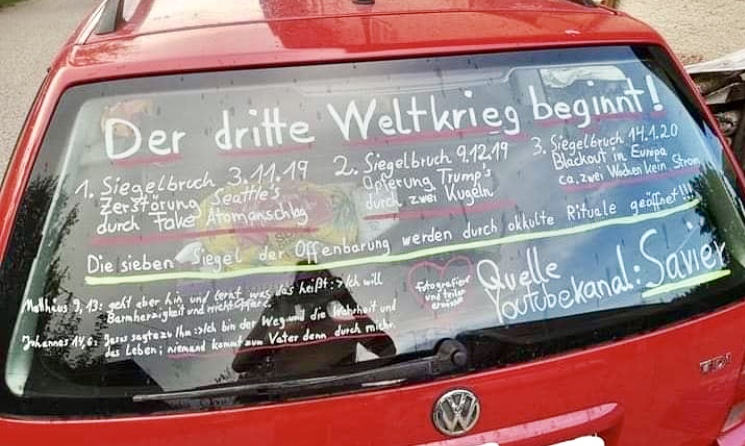 Der dritte Weltkrieg beginnt!
1. Siegelbruch 3.11.19
Zerstörung Seattle's
durch Fake Atomanschlag
2. Siegelbruch 9.12.19
Opferung Trump's
durch zwei Kugeln
3. Siegelbruch 14.1.20
Blackout in Europa
ca. zwei Wochen kein Strom
Die sieben Siegel der Offenbarung werden durch okkulte Rituale geöffnet!!!
Matthäus 9,13: geht aber hin und lernt was das heißt: >Ich will
Barmherzigkeit und nicht Opfer<
Johannes 14,6: Jesus sagte zu Ihm: >Ich bin der Weg und die Wahrheit und
das Leben; niemand kommt zum Vater denn durch mich.
Fotografieren
und teilen
erwünscht
Quelle
Youtubekanal: Savier
TDI